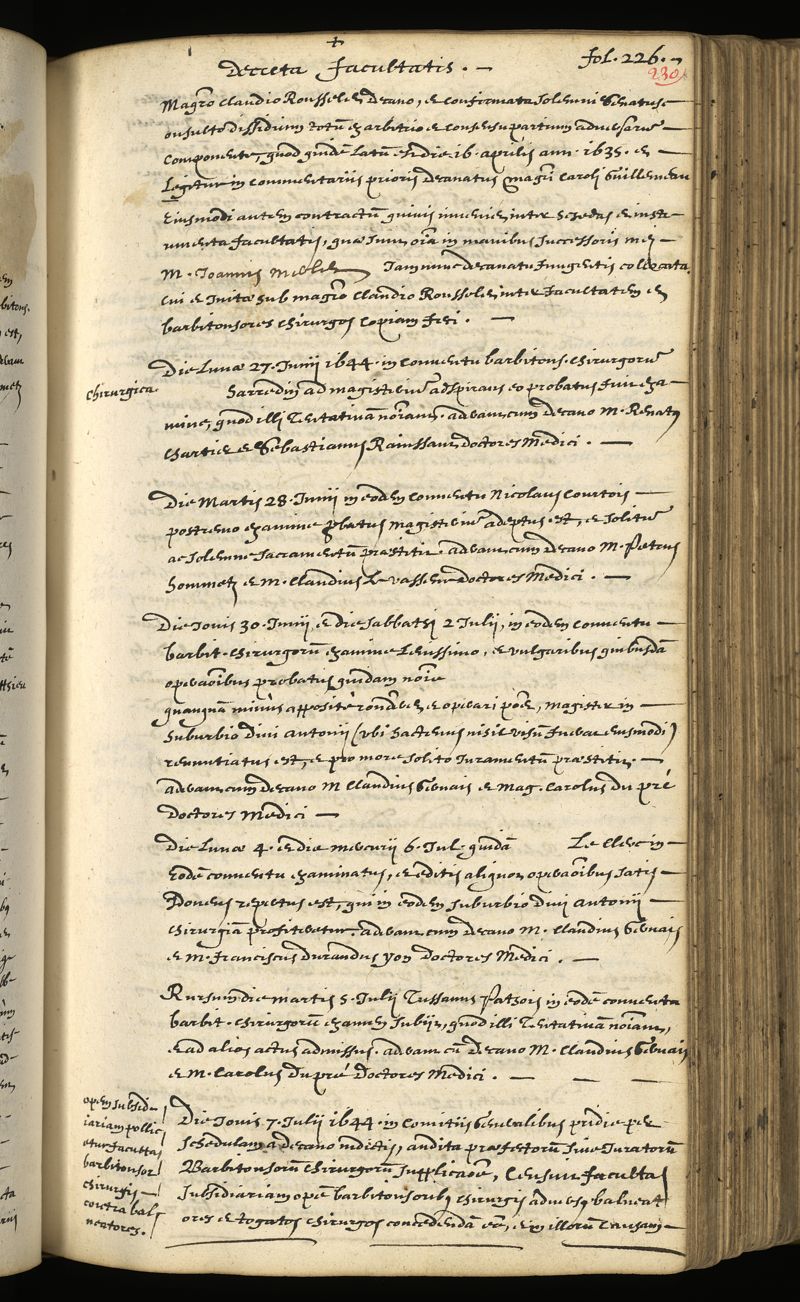 +
Decreta facultatis. —
fol. 226. —
230
Magro Claudio Rousselet Decano, et confirmata solemni Senatus-
onsulto dissidium totu ex arbitrio et consensu partium adversaru
componente, quod quide latu est die 16 aprilis ann. 1635. et
Legitur in commentariis prioris decanatus magri Caroli Guillemeau
Eiusmodi autem contractu quivis inveniet inter schedas et instr-
umenta facultatis, quæ sunt oia in manibus successoris mei
M. Ioannis Merlet Iam nunc decanatu fungentis collocata,
cui et Initæ sub magro Claudio Rousselet inter facultatem et
barbitonsores chirurgos copiam feci. —
Chirurgica.
Die Lunæ 27. Iunii 1644. in conventu barbitons. chirurgoru
Sarredin ad magisteriu adspirans eo probatus fuit exa-
mine, quod illi Tentativam noiant. aderant cum decano M. Renatus
Chartier et Sebastianus Rainssant doctores Medici. —
Die Martis 28. Iunii in eodem conventu Nicolaus Courtois —
postremo examine pbatus magisteriu adeptus est, et solitu
ac solemne sacramentu præstitit. aderant cum decano M. Petrus
hommetz et M. Claudius Le vasseur doctores Medici. —
Die Iovis 30. Iunii, et die sabbathi 2 Iulii, in eodem conventu —
barbit. chirurgoru examine Levissimo, et vulgaribus quibusdā
operaōibus probatus quidam noīe
quanquā minus appositè rondere et operari pōt, magister in —
suburbio divi antonii (ubi hactenus nisi visu fuerat eiusmodi)
renuntiatus est, et pro more solito Iuramentu præstitit. —
aderant cum decano M Claudius Gervais et Mag. Carolus du pré
Doctores Medici —
Die Lunæ 4. et die mercurii 6. Iul. quidā Le Clerc in —
eodē conventu examinatus, et editis aliquot operaōibus satis —
Idoneus repertus est, qui in eodem suburbio divi antonii —
chirurgiā profiteretur. aderant cum decano M. Claudius Gervais
et M. franciscus durandus yon Doctores Medici. —
Rursum die martis 5. Iulii Tussanus Patzois in eodē conventu
barbit. chirurgorū examen subiit, quod illi Tentativā noiant,
et ad alios actus admissus. aderant cū decano M. Claudius Gervais
et M. Carolus Du pré Doctores Medici. — — —
opem subsid-
iariam pollic
etur facultas
barbitonsor
chirurgis —
contra bal-
neatores.
Die Iovis 7. Iulii 1644. in comitiis Generalibus pridie per
schedulam a decano indictis, audita præfectorū sive Iuratorū
Barbitonsorū chirurgorū supplicaōe, Censuit facultas
subsidiariam opē barbitonsoribus chirurgis adversus balneat
ores et togatos chirurgos concedendā eē, et in illorū causam —